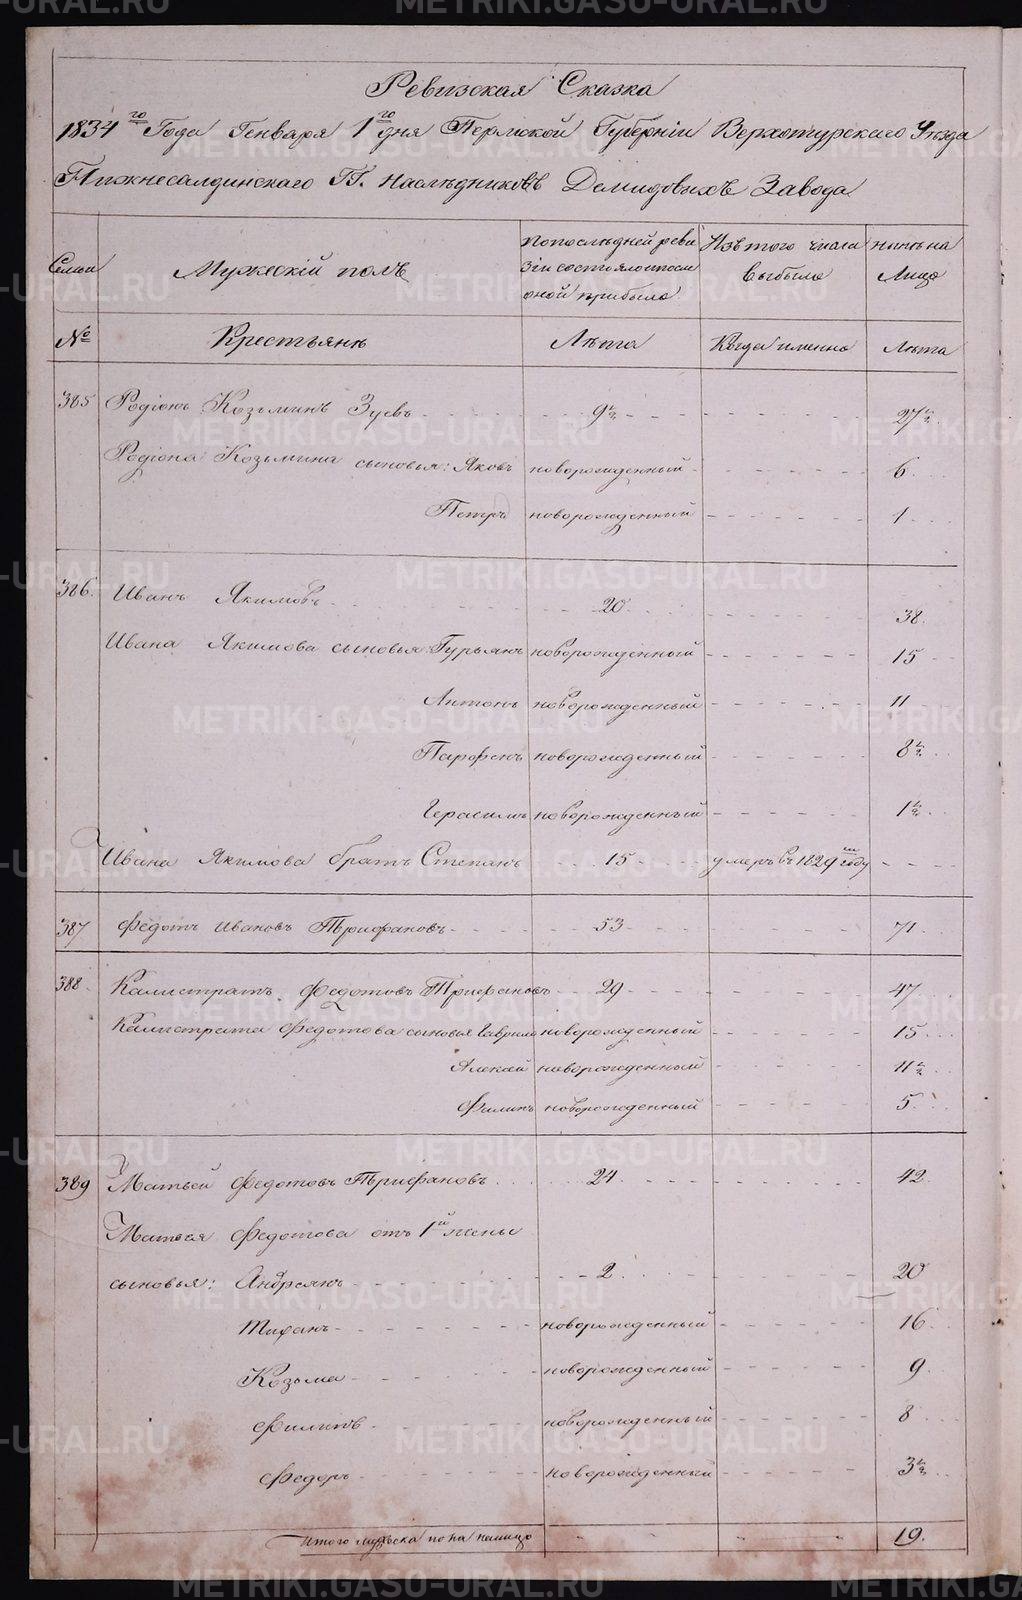 Ревизская Сказка
1834го Года Генваря 1го дня Пермской Губернiи Верхотурскаго Уѣзда
Нижнесалдинскаго ГГ. Наслѣдниковъ Демидовыхъ Завода
Семьи Мужескiй полъ По послѣдней реви Изъ того числа нынѣ на
зiи состояло и посли выбыло Лицо
оной прибыло
№ Крестьянѣ Лѣта Когда именно Лѣта
385 Родiонъ Козьминъ Зуевъ 9½ 27½
Родiона Козьмина сыновья: Яковъ новорожденный 6
Петръ новорожденный 1
386. Иванъ Якимовъ 20 38.
Ивана Якимова сыновья: Гурьянъ новорожденный 15
Антонъ новорожденный 11
Парфенъ новорожденный 8½
Герасимъ новорожденный 1½
Ивана Якимова братъ Степанъ 15 умеръ въ 1829м году
387 Федотъ Ивановъ Трифановъ 53 71
388 Калистратъ Федотовъ Трифановъ 29 47
Калистрата Федотова сыновья Гаврило новорожденный 15
Алексай новорожденный 11½
Филипъ новорожденный 5
389 Матвей Федотовъ Трифановъ 24 42
Матвея Федотова отъ 1й жены
сыновья: Андреянъ 2 20
Тифанъ новорожденный 16
Козьма новорожденный 9
Филипъ новорожденный 8
Федоръ новорожденный 3½
Итого мужеска пола налицо 19.
METRIKI.GASO-URAL.RU